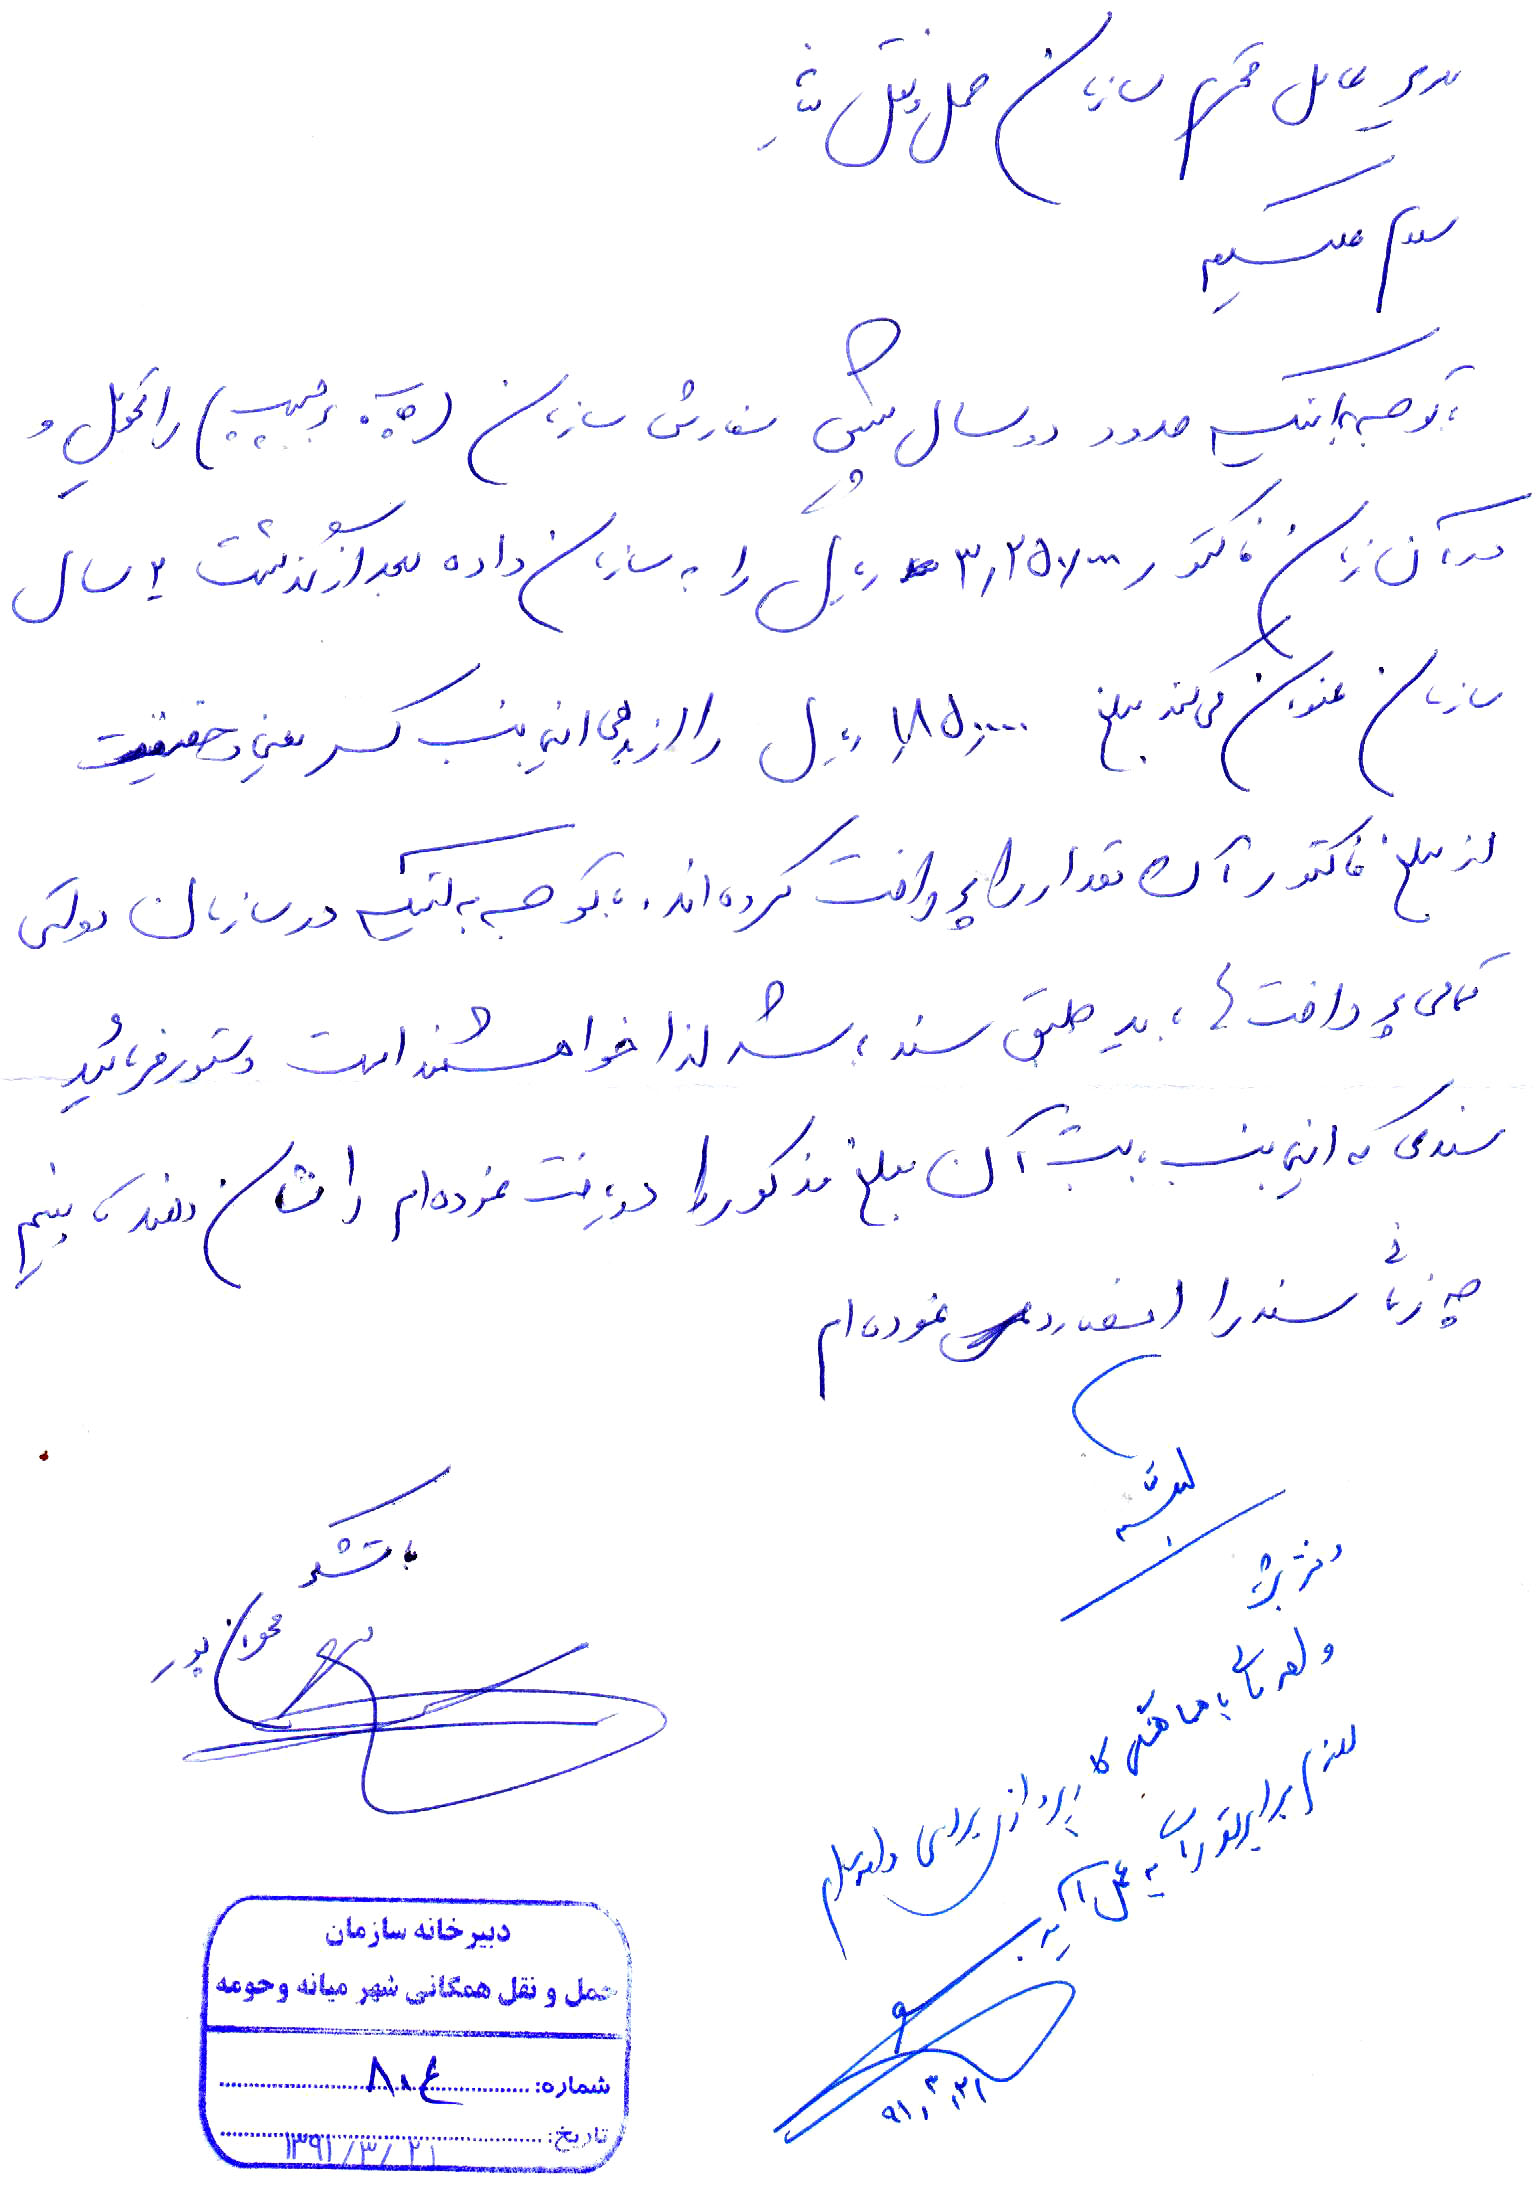 مدیر عامل محترم سازمان حمل و نقل
سلام علیکم
با توجه به اینکه حدود دو سال پیش سفارش سازمان (چاپ برچسب) را تحویل و
در آن زمان فاکتور ریال را به سازمان داده بعد از گذشت ۲ سال
سازمان عنوان می کند مبلغ ۱,۸۵۰,۰۰۰ ریال را از بدهی اینجانب کسر یعنی در حقیقت
از مبلغ فاکتور آن مقدار را پرداخت کرده اند. با توجه به اینکه در سازمان دولتی
تمامی پرداخت ها باید طبق سند باشد لذا خواهشمند است دستور فرمائید
سندی که اینجانب بابت آن مبلغ مذکور را دریافت نموده ام را نشان دهند تا ببینم
چه زمانی سند را امضاء نموده ام
با تشکر
پور
و امور مالی با هماهنگی کارپردازی بررسی و اقدام
لازم برابر مقررات به عمل آید
۹۱/۳/۲۱
دبیرخانه سازمان
حمل و نقل همگانی شهر میانه و حومه
شماره: ۸۰۴
تاریخ: ۱۳۹۱/۳/۲۱